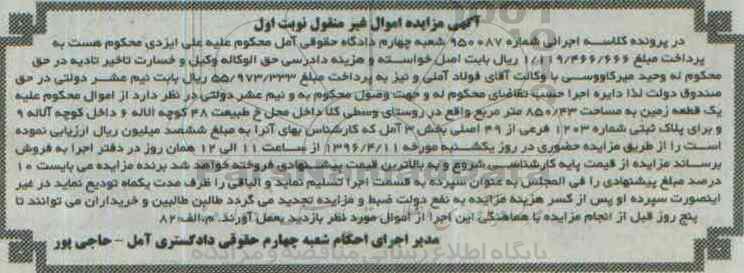 آگهی مزایده اموال غیر منقول نوبت اول
در پرونده کلاسه اجرائی شماره ۹۵۰۰۸۷ شعبه چهارم دادگاه حقوقی آمل محکوم علیه علی ایزدی محکوم هست به
پرداخت مبلغ ۱/۱۱۹/۴۶۶/۶۶۶ ریال بابت اصل خواسته و هزینه دادرسی حق الوکاله وکیل و خسارت تاخیر تادیه در حق
محکوم له وحید میرکاووسی با وکالت آقای فولاد آملی و نیز به پرداخت مبلغ ۵۵/۹۷۳/۳۳۳ ریال بابت نیم عشر دولتی در حق
صندوق دولت لذا دایره اجرا حسب تقاضای محکوم له و جهت وصول محکوم به و نیم عشر دولتی در نظر دارد از اموال محکوم علیه
یک قطعه زمین به مساحت ۸۵۰/۴۳ متر مربع واقع در روستای وسطی کلا داخل محل خ طبیعت ۴۸ کوچه الاله ۶ داخل کوچه آلاله ۹
و برای پلاک ثبتی شماره ۱۲۰۳ فرعی از ۴۹ اصلی بخش ۳ آمل که کارشناس بهای آنرا به مبلغ ششصد میلیون ریال ارزیابی نموده
است را از طریق مزایده حضوری در روز یکشنبه مورخه ۱۳۹۶/۴/۱۱ از ساعت ۱۱ الی ۱۲ همان روز در دفتر اجرا به فروش
برساند مزایده از قیمت پایه کارشناسی شروع و به بالاترین قیمت پیشنهادی فروخته خواهد شد برنده مزایده می بایست ۱۰
درصد مبلغ پیشنهادی را فی المجلس به عنوان سپرده به قسمت اجرا تسلیم نماید و الباقی را ظرف مدت یکماه تودیع نماید در غیر
اینصورت سپرده او پس از کسر هزینه مزایده به نفع دولت ضبط و مزایده تجدید می گردد طالبین و خریداران می توانند تا
پنج روز قبل از انجام مزایده با هماهنگی این اجرا از اموال مورد نظر بازدید بعمل آورند م.الف:۸۲
مدیر اجرای احکام شعبه چهارم حقوقی دادگستری آمل - حاجی پور
ParsNamadData
پایگاه اطلاع رسانی مناقصه و مزایده